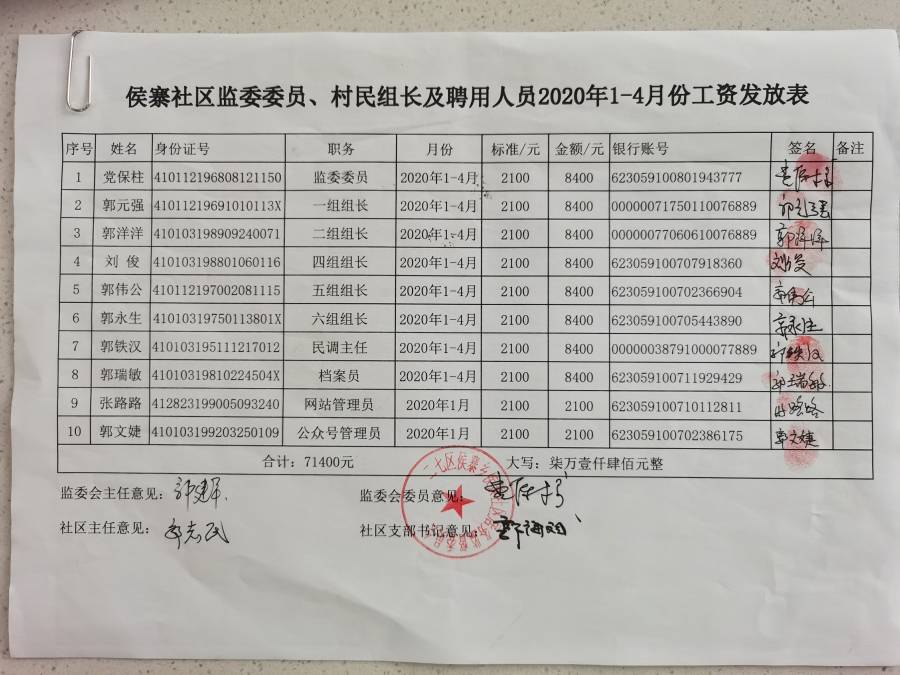 侯寨社区监委委员、村民组长及聘用人员2020年1-4月份工资发放表
序号 姓名 身份证号 职务 月份 标准/元 金额/元 银行账号 签名 备注
1 党保柱 410112196808121150 监委委员 2020年1-4月 2100 8400 623059100801943777 党保柱
2 郭元强 41011219691010113X 一组组长 2020年1-4月 2100 8400 00000071750110076889 郭元强
3 郭洋洋 410103198909240071 二组组长 2020年1-4月 2100 8400 00000077060610076889 郭洋洋
4 刘 俊 410103198801060116 四组组长 2020年1-4月 2100 8400 623059100707918360 刘俊
5 郭伟公 410112197002081115 五组组长 2020年1-4月 2100 8400 623059100702366904 郭伟公
6 郭永生 41010319750113801X 六组组长 2020年1-4月 2100 8400 623059100705443890 郭永生
7 郭铁汉 410103195111217012 民调主任 2020年1-4月 2100 8400 00000038791000077889 郭铁汉
8 郭瑞敏 41010319810224504X 档案员 2020年1-4月 2100 8400 623059100711929429 郭瑞敏
9 张路路 412823199005093240 网站管理员 2020年1月 2100 2100 623059100710112811 张路路
10 郭文婕 410103199203250109 公众号管理员 2020年1月 2100 2100 623059100702386175 郭文婕
合计：71400元 大写：柒万壹仟肆佰元整
监委会主任意见： 监委会委员意见： 党保柱
社区主任意见： 郭志民 社区支部书记意见： 郭海明